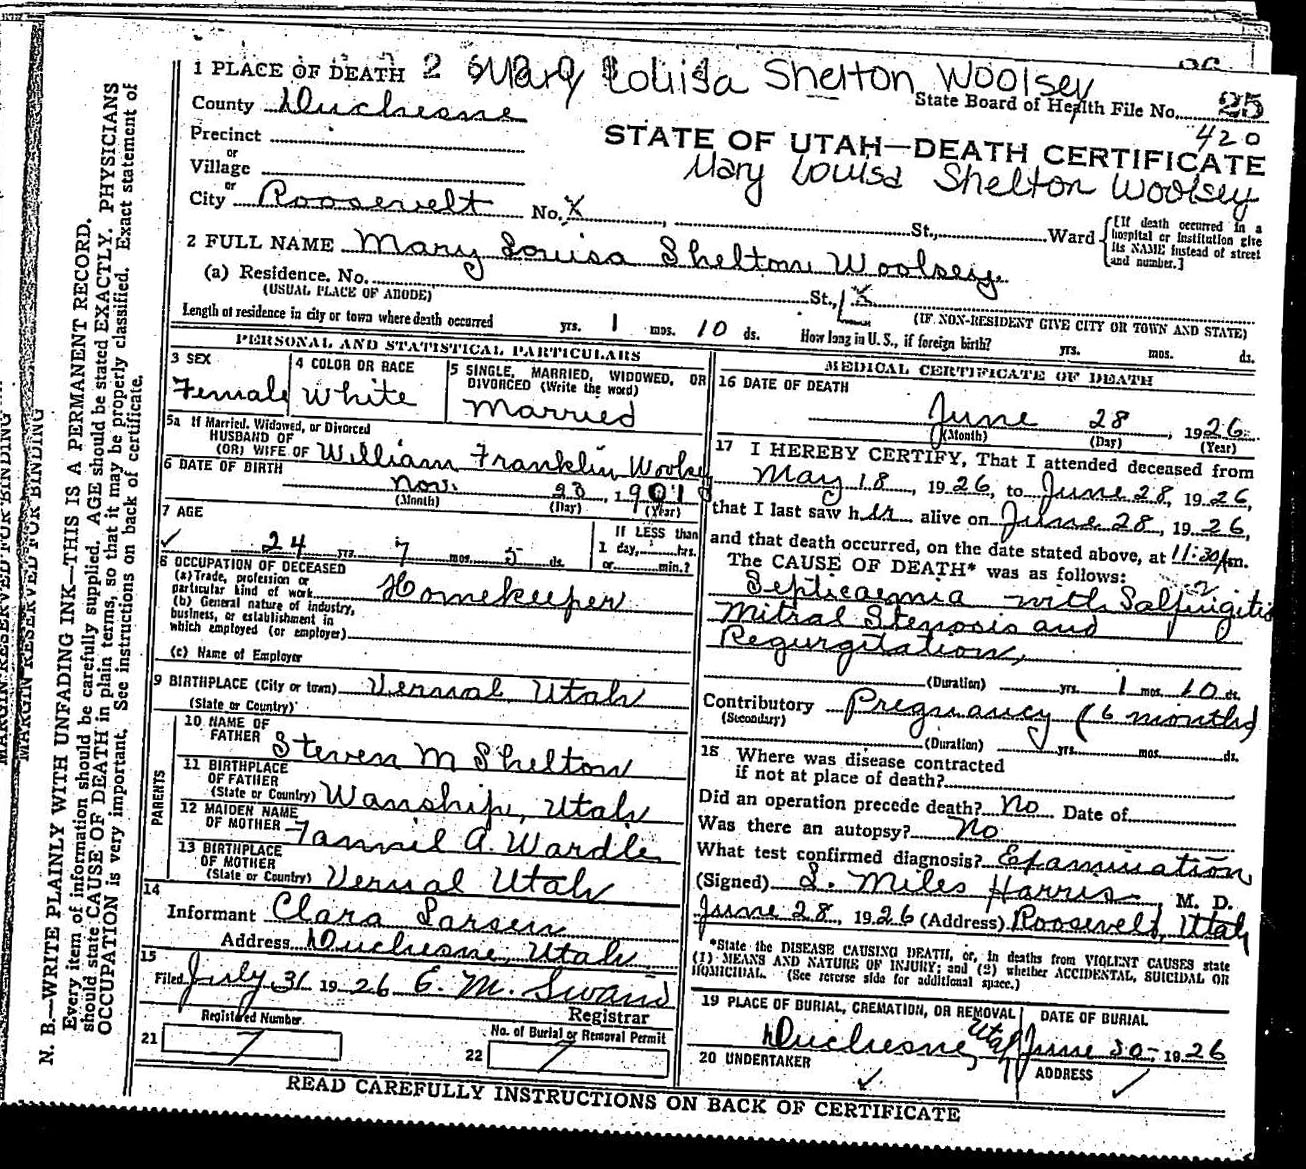 1 PLACE OF DEATH 2 Mary Louisa Shelton Woolsey
State Board of Health File No. 25
County Duchesne
420
Precinct
STATE OF UTAH—DEATH CERTIFICATE
or
Village
Mary Louisa Shelton Woolsey
or
City Roosevelt No. X , St., Ward {[If death occurred in a hospital or institution give its NAME instead of street and number.]
2 FULL NAME Mary Louisa Shelton Woolsey
(a) Residence. No. St., X
(USUAL PLACE OF ABODE) (IF NON-RESIDENT GIVE CITY OR TOWN AND STATE)
Length of residence in city or town where death occurred yrs. 1 mos. 10 ds. How long in U. S., if foreign birth? yrs. mos. ds.
PERSONAL AND STATISTICAL PARTICULARS
3 SEX
Female
4 COLOR OR RACE
White
5 SINGLE, MARRIED, WIDOWED, OR
DIVORCED (Write the word)
Married
5a If Married, Widowed, or Divorced
HUSBAND OF
(OR) WIFE OF William Franklin Woolsey
6 DATE OF BIRTH
Nov. 23, 1901
(Month) (Day) (Year)
7 AGE
24 yrs. 7 mos. 5 ds.
If LESS than
1 day, hrs.
or min.?
8 OCCUPATION OF DECEASED
(a) Trade, profession or
particular kind of work Homekeeper
(b) General nature of industry,
business, or establishment in
which employed (or employer)
(c) Name of Employer
9 BIRTHPLACE (City or town) Vernal Utah
(State or Country)
PARENTS
10 NAME OF
FATHER Steven M Shelton
11 BIRTHPLACE
OF FATHER
(State or Country) Wanship, Utah
12 MAIDEN NAME
OF MOTHER Fannie A. Wardle
13 BIRTHPLACE
OF MOTHER
(State or Country) Vernal Utah
14
Informant Clara Larsen
Address Duchesne, Utah
15
Filed July 31 1926 E. M. Swain
Registrar
Registered Number
21 7
No. of Burial or Removal Permit
22 7
MEDICAL CERTIFICATE OF DEATH
16 DATE OF DEATH
June 28, 1926
(Month) (Day) (Year)
17 I HEREBY CERTIFY, That I attended deceased from
May 18, 1926, to June 28, 1926,
that I last saw her alive on June 28, 1926,
and that death occurred, on the date stated above, at 11:30 m.
The CAUSE OF DEATH* was as follows:
Septicaemia with Salpingitis
Mitral Stenosis and
Regurgitation,
(Duration) yrs. 1 mos. 10 ds.
Contributory Pregnancy (6 months)
(Secondary)
(Duration) yrs. mos. ds.
18 Where was disease contracted
if not at place of death?
Did an operation precede death? No Date of
Was there an autopsy? No
What test confirmed diagnosis? Examination
(Signed) L. Miles Harris, M. D.
June 28, 1926 (Address) Roosevelt, Utah
*State the DISEASE CAUSING DEATH, or, in deaths from VIOLENT CAUSES state
(1) MEANS AND NATURE OF INJURY; and (2) whether ACCIDENTAL, SUICIDAL OR
HOMICIDAL. (See reverse side for additional space.)
19 PLACE OF BURIAL, CREMATION, OR REMOVAL
Duchesne, Utah
DATE OF BURIAL
June 30, 1926
20 UNDERTAKER
ADDRESS
READ CAREFULLY INSTRUCTIONS ON BACK OF CERTIFICATE
MARGIN RESERVED FOR BINDING
MARGIN RESERVED FOR BINDING
N. B.—WRITE PLAINLY WITH UNFADING INK—THIS IS A PERMANENT RECORD.
Every item of information should be carefully supplied. AGE should be stated EXACTLY. PHYSICIANS
should state CAUSE OF DEATH in plain terms, so that it may be properly classified. Exact statement of
OCCUPATION is very important. See instructions on back of certificate.